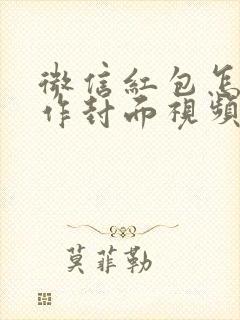 微信紅包怎
作封面視頻
莫菲勒